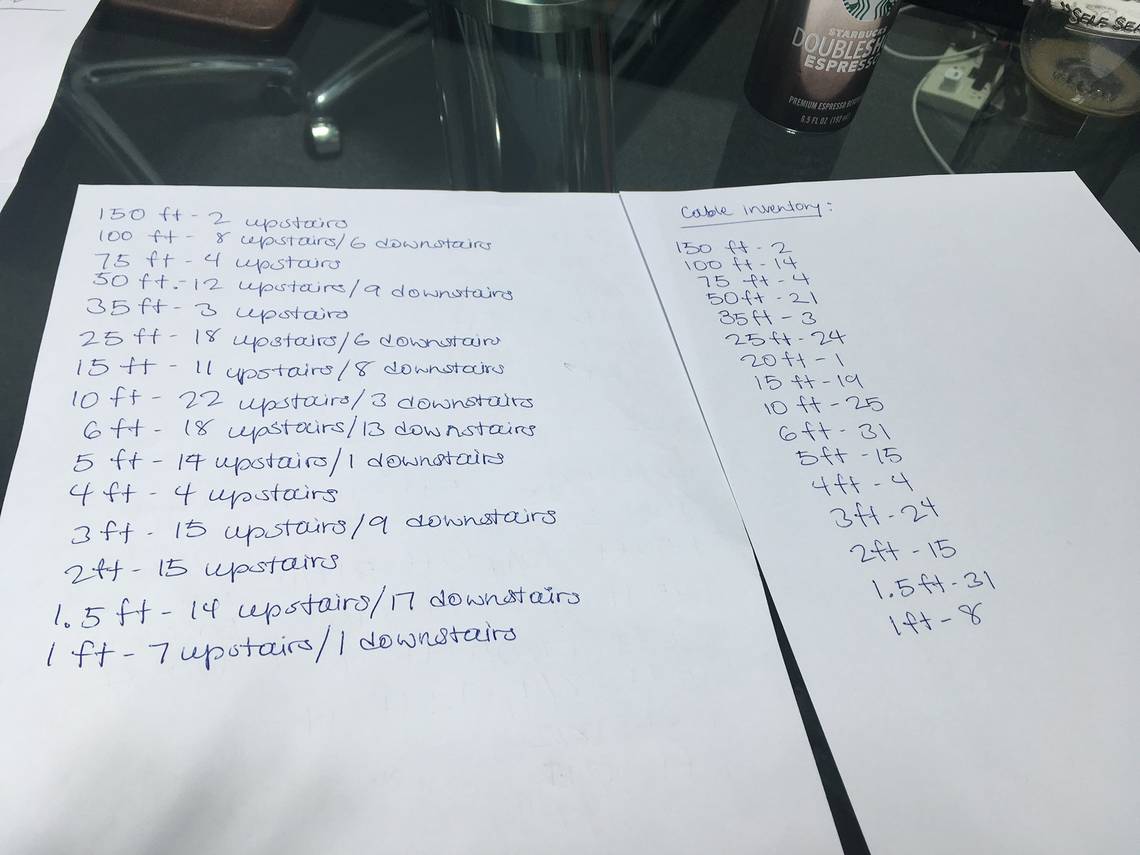 STARBUCKS
DOUBLESH
ESPRESSO
PREMIUM ESPRESSO
6.5 FL OZ (192 mL)
"SELF SEA
150 ft - 2 upstairs
100 ft - 8 upstairs/6 downstairs
75 ft - 4 upstairs
50 ft - 12 upstairs/9 downstairs
35 ft - 3 upstairs
25 ft - 18 upstairs/6 downstairs
15 ft - 11 upstairs/8 downstairs
10 ft - 22 upstairs/3 downstairs
6 ft - 18 upstairs/13 downstairs
5 ft - 14 upstairs/1 downstairs
4 ft - 4 upstairs
3 ft - 15 upstairs/9 downstairs
2 ft - 15 upstairs
1.5 ft - 14 upstairs/17 downstairs
1 ft - 7 upstairs/1 downstairs
Cable inventory:
150 ft - 2
100 ft - 14
75 ft - 4
50 ft - 21
35 ft - 3
25 ft - 24
20 ft - 1
15 ft - 19
10 ft - 25
6 ft - 31
5 ft - 15
4 ft - 4
3 ft - 24
2 ft - 15
1.5 ft - 31
1 ft - 8